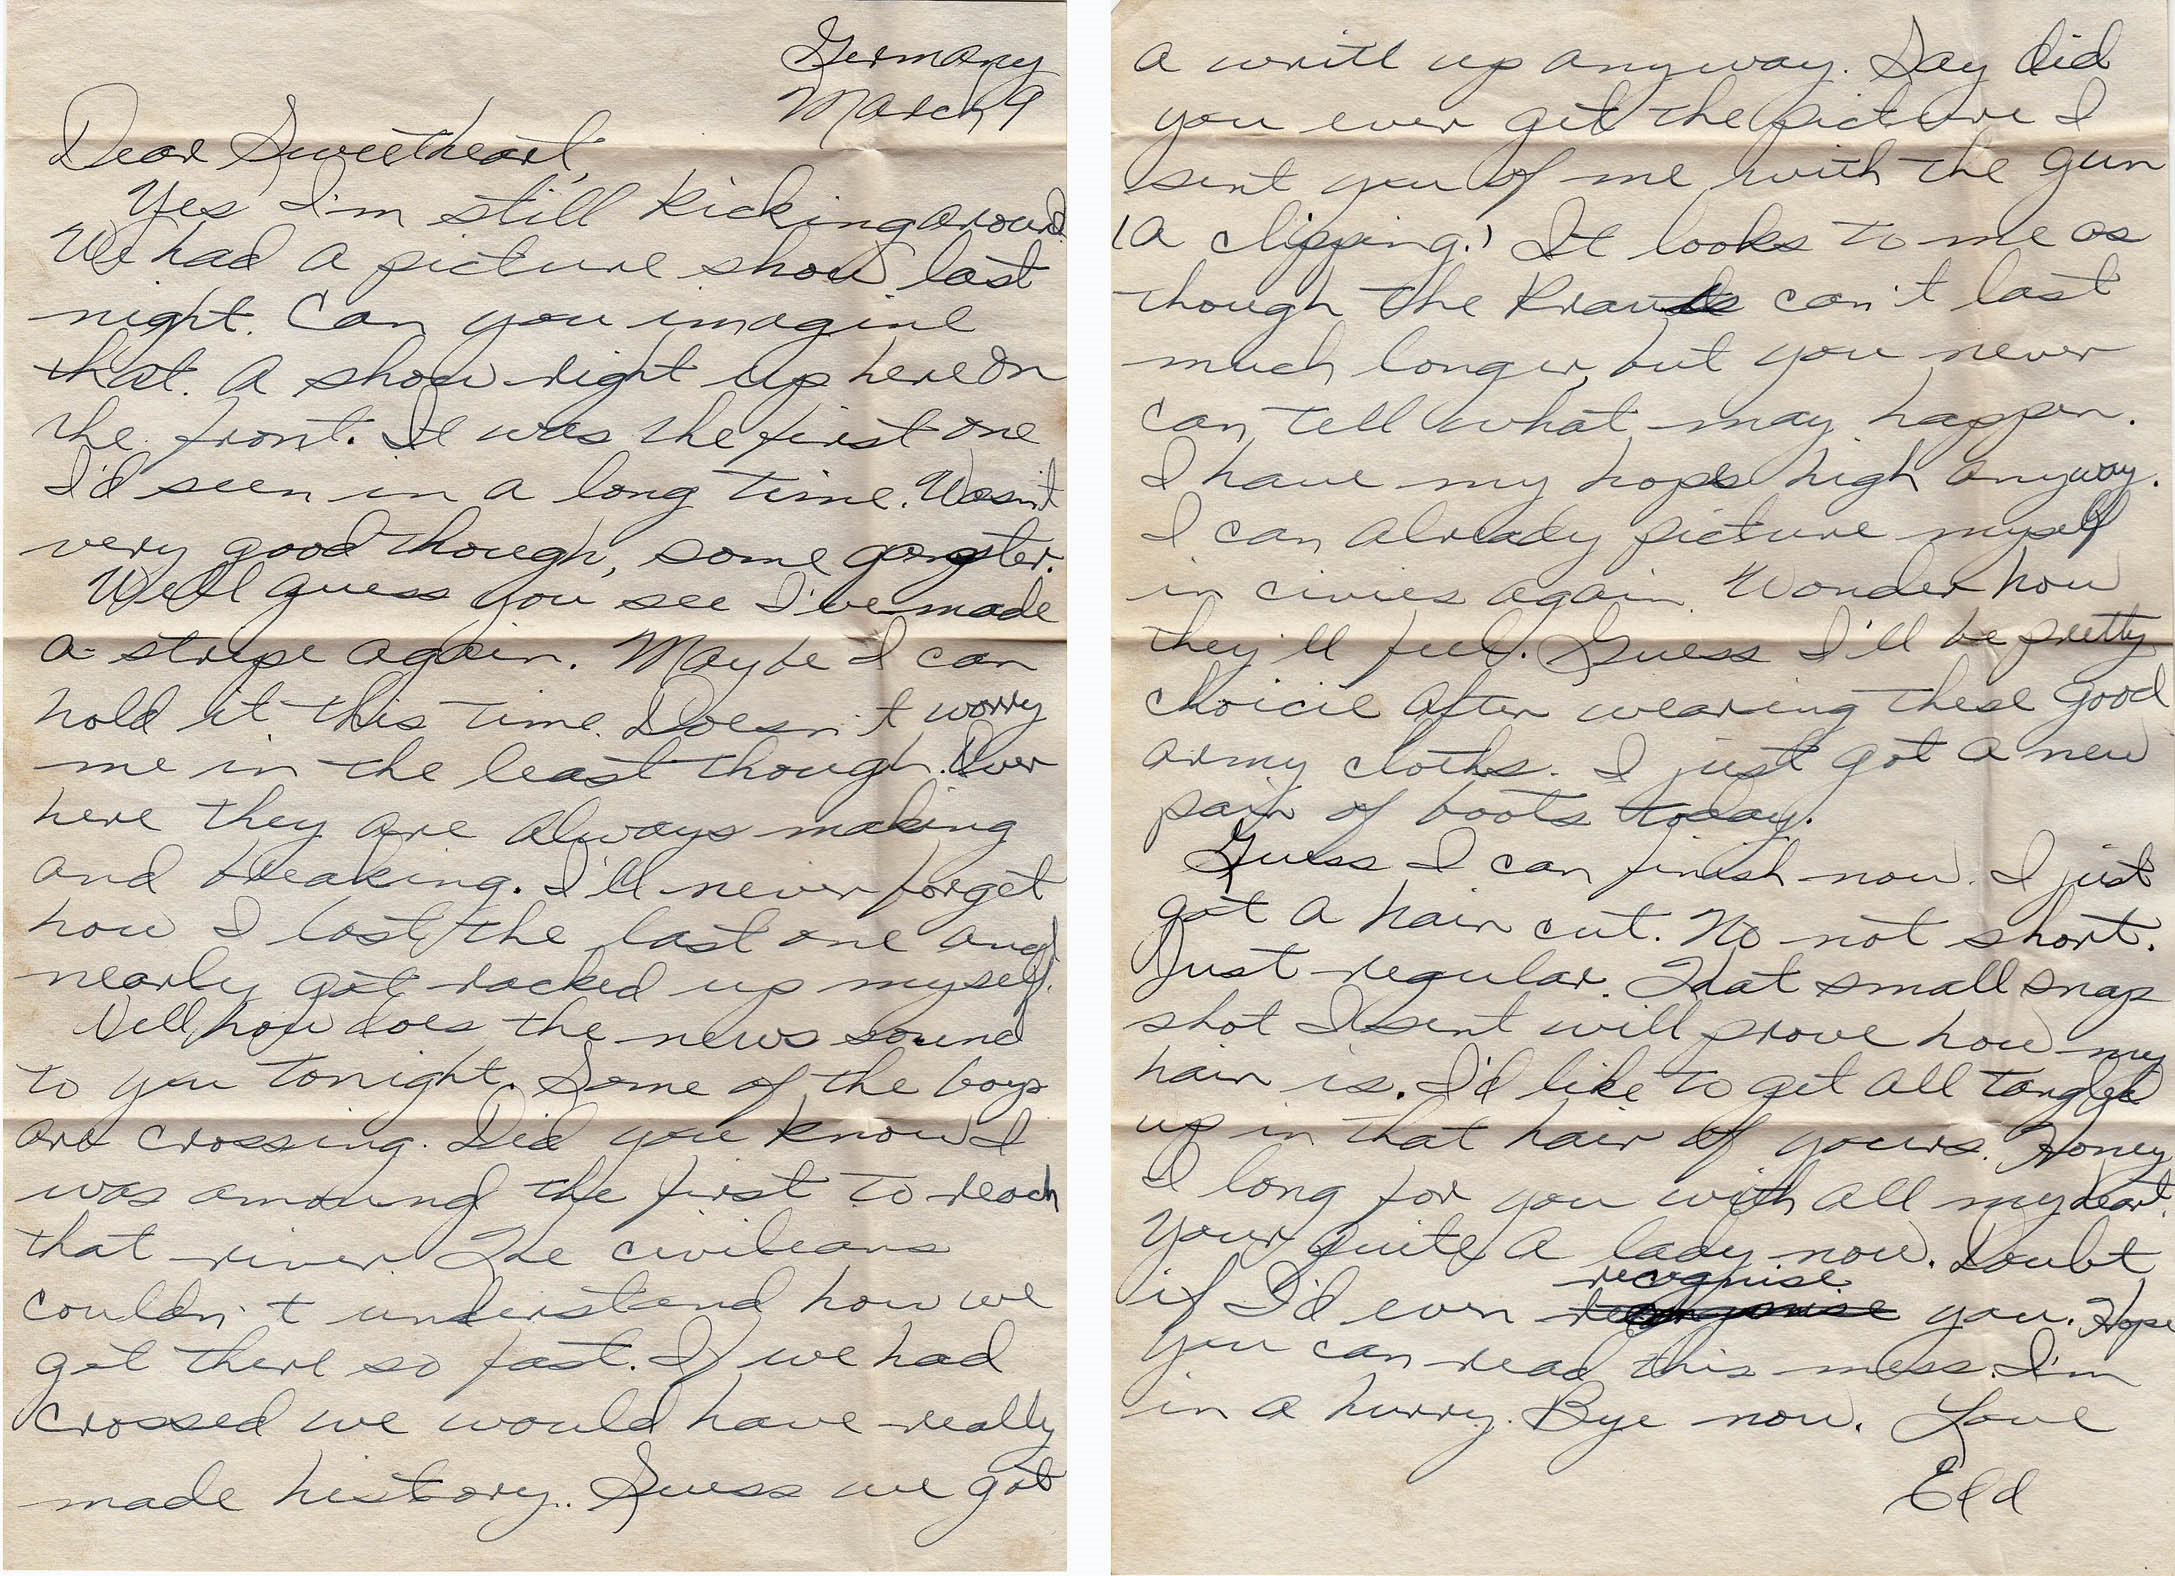 Germany
March 9
Dear Sweetheart,
Yes I'm still kicking around.
We had a picture show last
night. Can you imagine
that. A show right up here on
the front. It was the first one
I'd seen in a long time. Wasn't
very good though, some gangster.
Well guess you see I've made
a stripe again. Maybe I can
hold it this time. Doesn't worry
me in the least though. Over
here they are always making
and breaking. I'll never forget
how I lost the last one and
nearly got racked up myself.
Well how does the news sound
to you tonight. Some of the boys
are crossing. Did you know I
was amoung the first to reach
that river. The civilians
couldn't understand how we
got there so fast. If we had
crossed we would have really
made history. Guess we got
a write up anyway. Say did
you ever get the picture I
sent you of me with the gun
(a clipping.) It looks to me as
though the Krauts can't last
much longer, but you never
can tell what may happen.
I have my hopes high anyway.
I can already picture myself
in civies again. Wonder how
they'll feel. Guess I'll be pretty
choicie after wearing these good
army cloths. I just got a new
pair of boots today.
Guess I can finish now. I just
got a hair cut. No not short.
Just regular. That small snap
shot I sent will prove how my
hair is. I'd like to get all tangled
up in that hair of yours. Honey
I long for you with all my heart.
Your quite a lady now. Doubt
if I'd even recognise you. Hope
you can read this mess. I'm
in a hurry. Bye now. Love
Eld